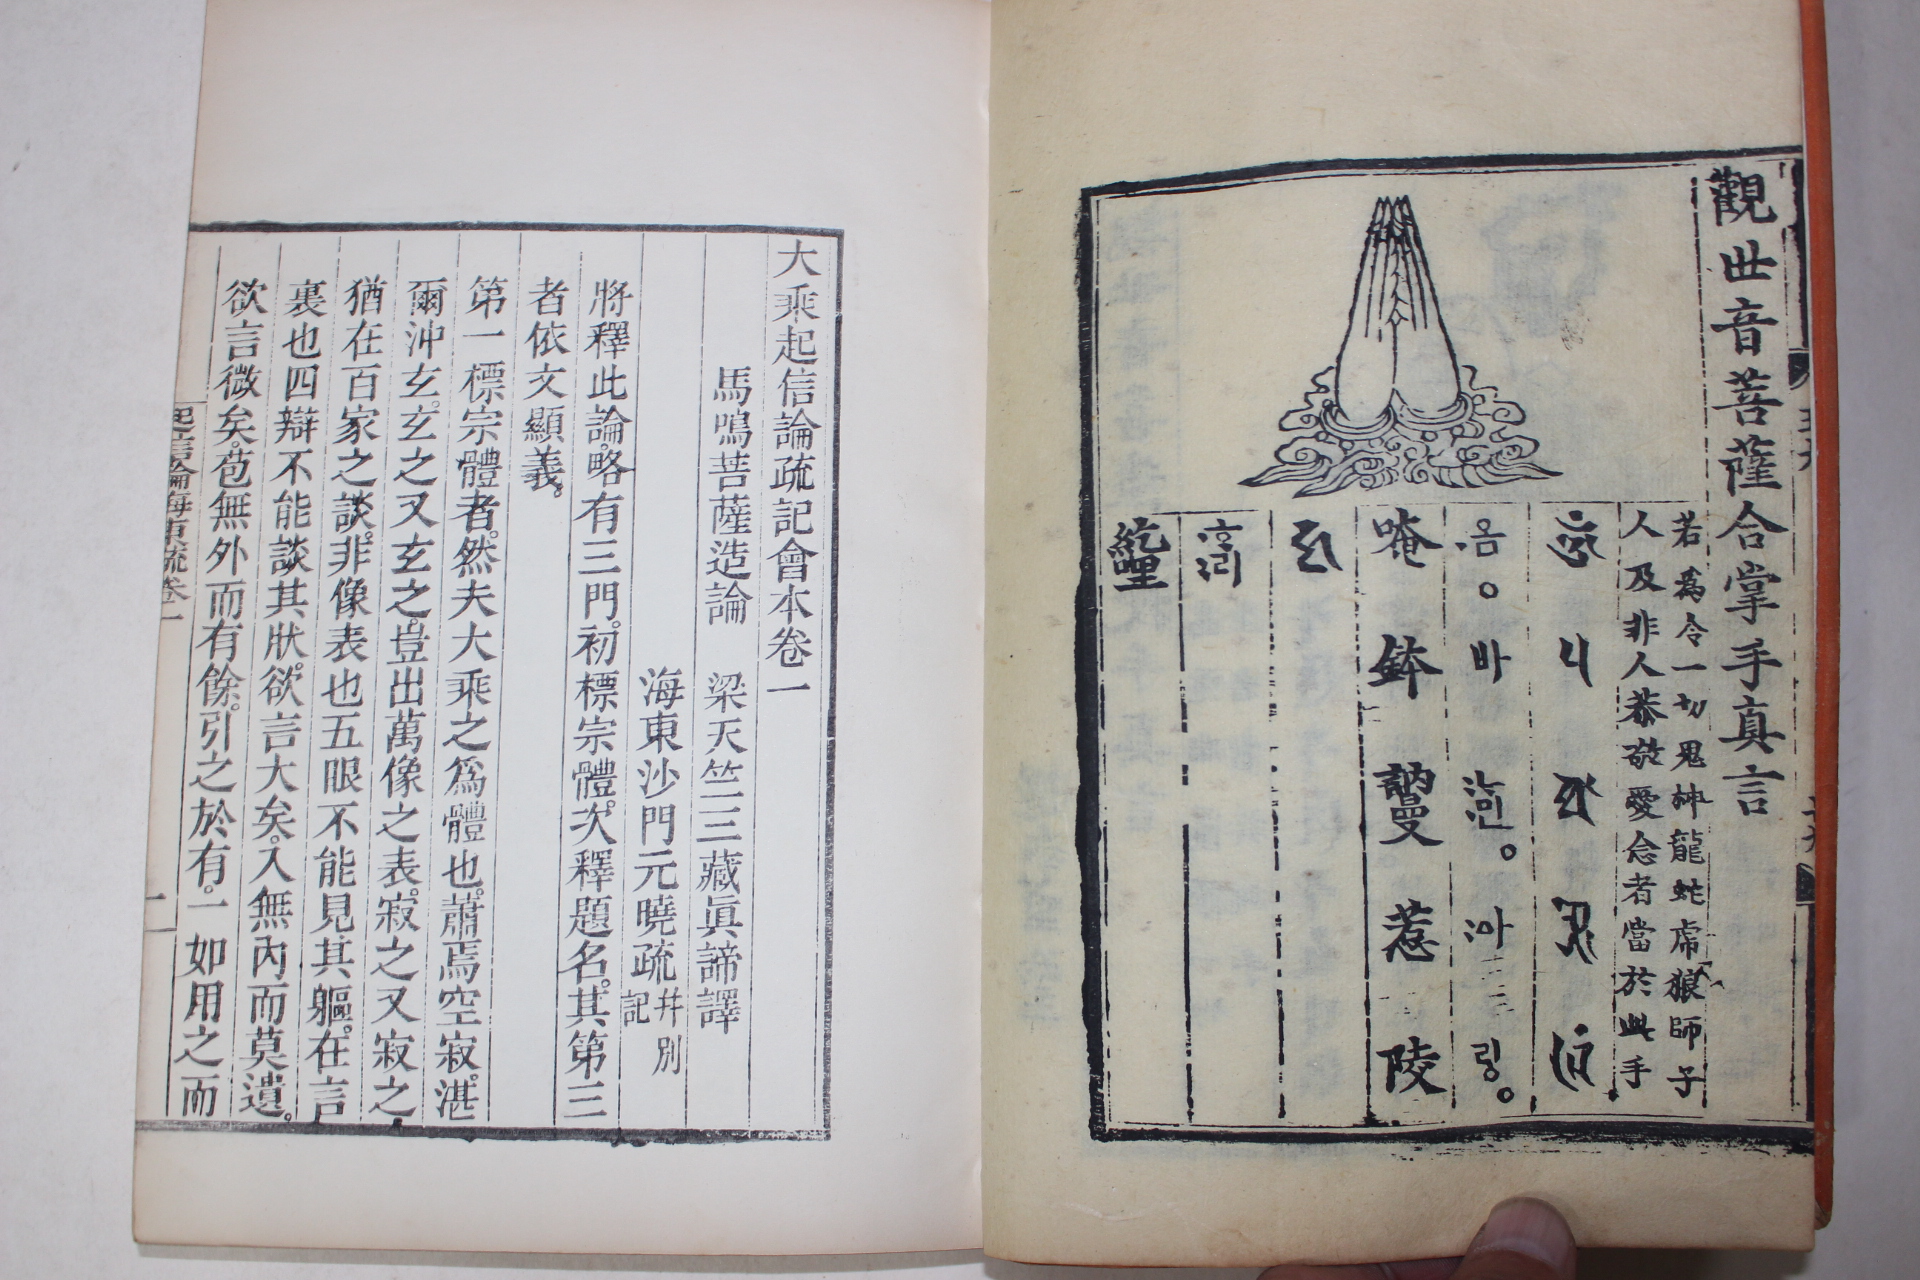 觀世音菩薩合掌手真言
若爲令一切鬼神龍蛇虎狼師子
人及非人恭敬愛念者當於此手
옴。바
唵鉢訥曼惹二合陵
링。
大乘起信論疏記會本卷一
馬鳴菩薩造論 梁天竺三藏眞諦譯
海東沙門元曉疏幷別記
將釋此論。略有三門。初標宗體。次釋題名。其第三
者依文顯義。
第一標宗體者。然夫大乘之爲體也。蕭焉空寂。湛
爾沖玄。玄之又玄之。豈出萬像之表。寂之又寂之。
猶在百家之談。非像表也五眼不能見其軀。在言
裏也四辯不能談其狀。欲言大矣。入無內而莫遺。
欲言微矣。苞無外而有餘。引之於有。一如用之而
起信論海東疏卷一 一